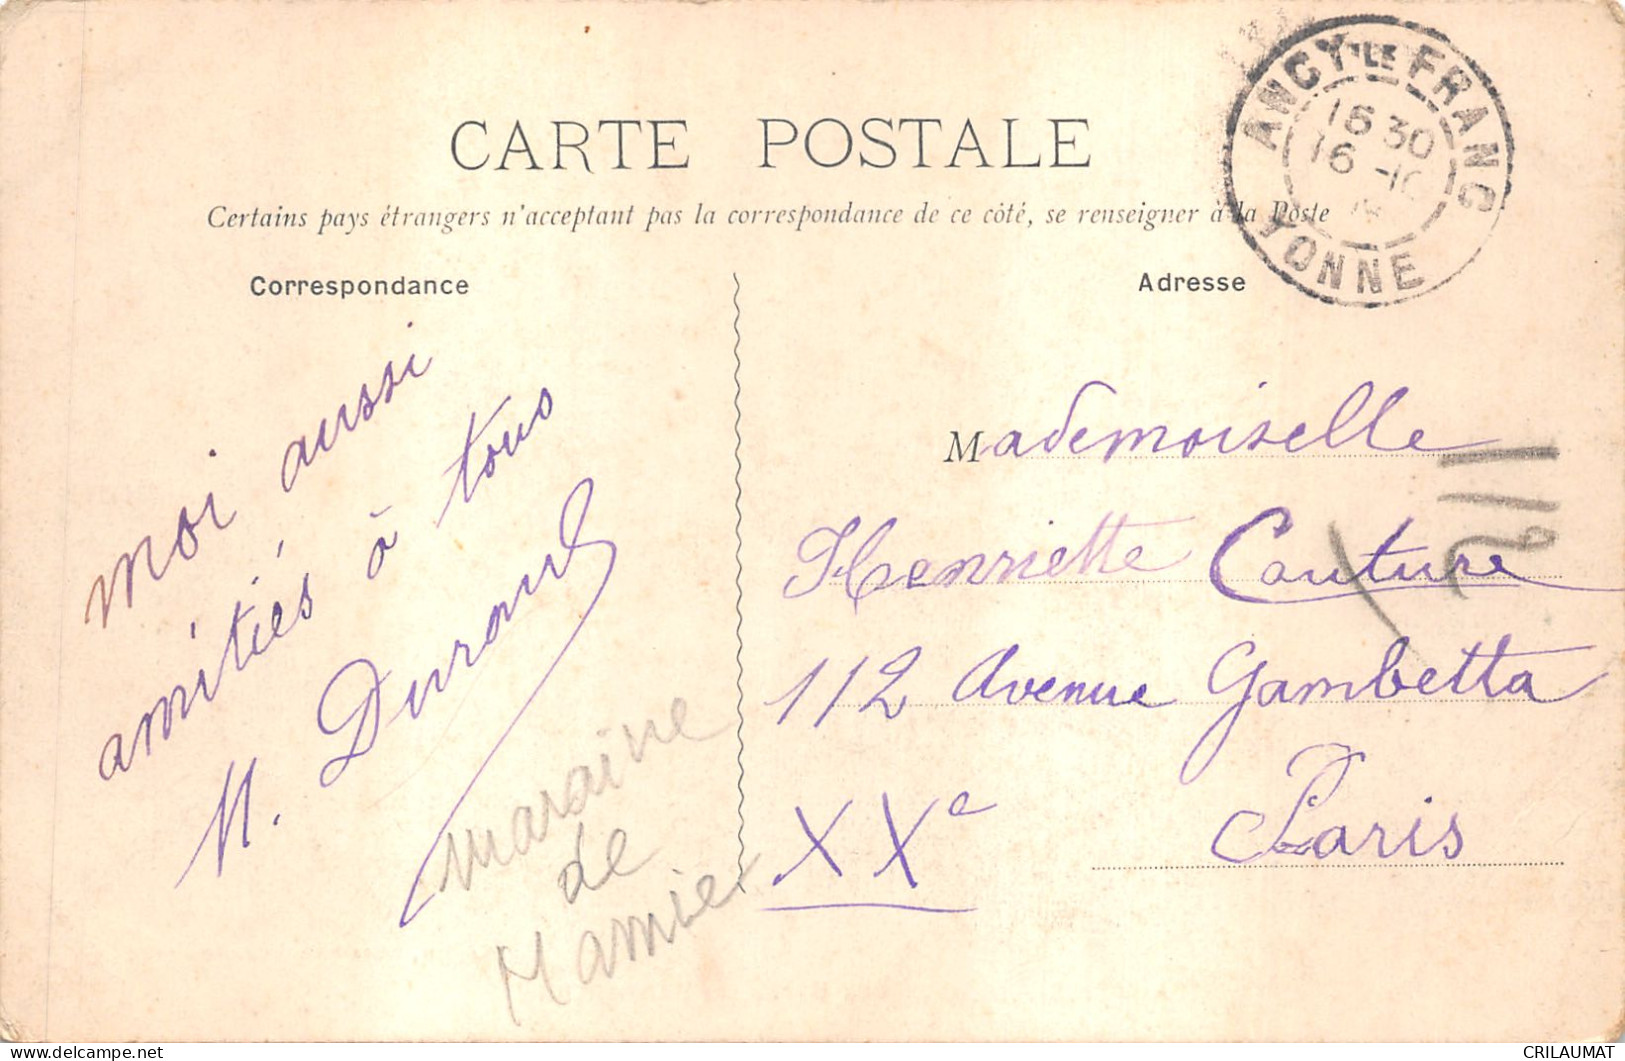 CARTE POSTALE
Certains pays étrangers n'acceptant pas la correspondance de ce côté, se renseigner à la Poste
ANCY-LE-FRANC
16 30
16 -10
YONNE
Correspondance
moi aussi
amitiés à tous
M. Durand
maraine
de
Mamie
Adresse
Mademoiselle
Henriette Couture
112 Avenue Gambetta
Paris
XXe
CRILAUMAT